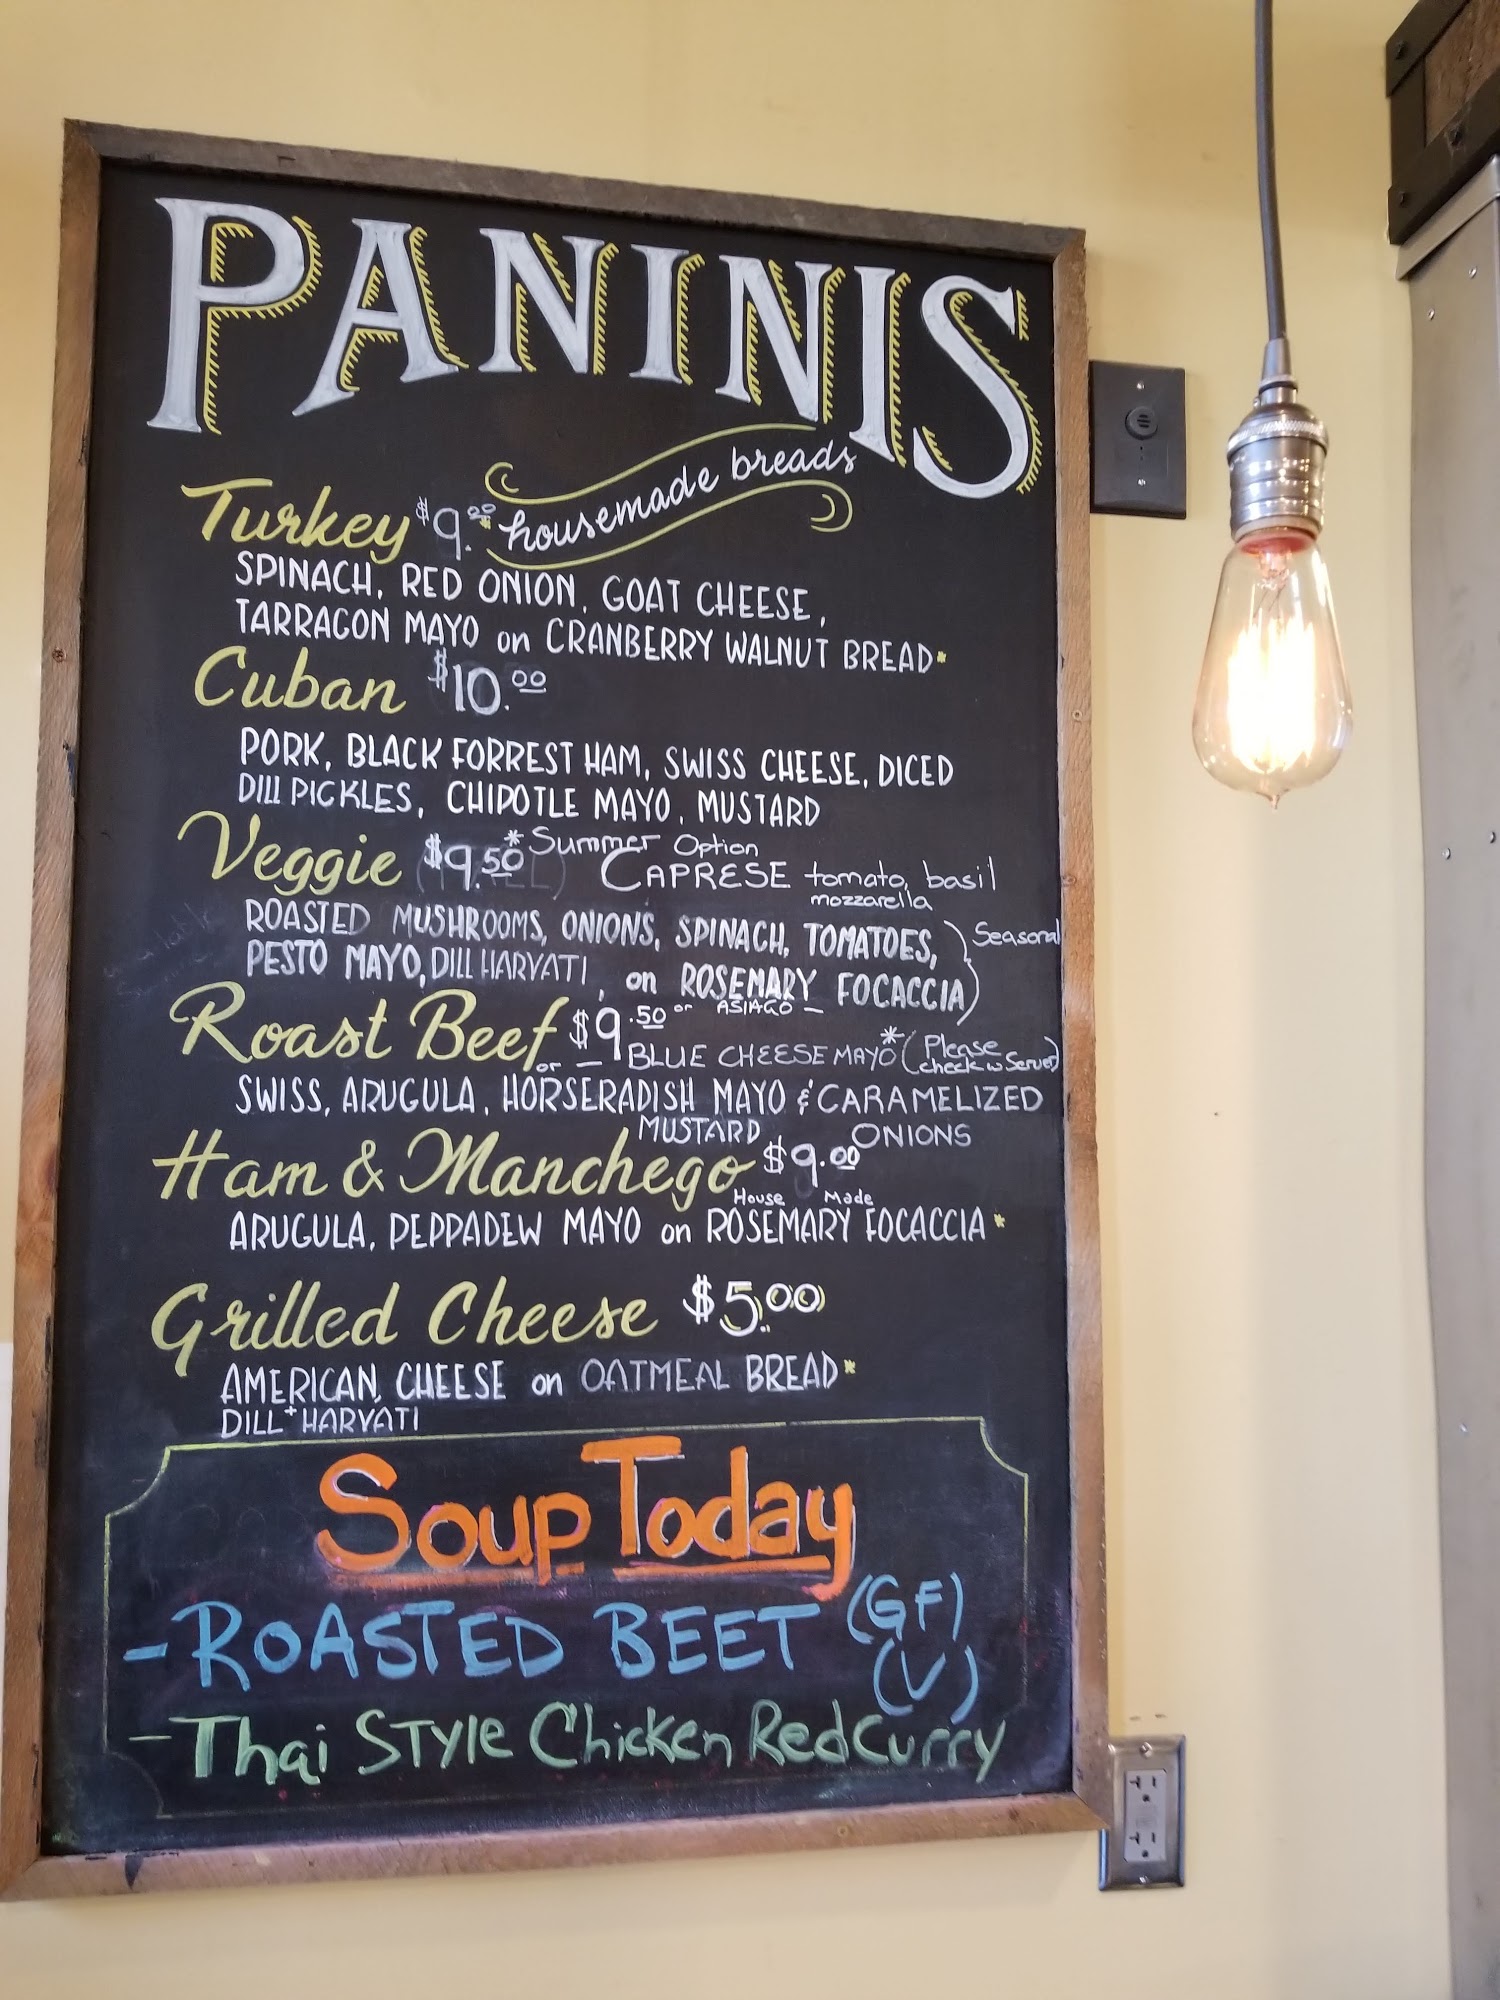 PANINIS
homemade breads
Turkey $9.00
SPINACH, RED ONION, GOAT CHEESE,
TARRAGON MAYO on CRANBERRY WALNUT BREAD*
Cuban $10.00
PORK, BLACK FORREST HAM, SWISS CHEESE, DICED
DILL PICKLES, CHIPOTLE MAYO, MUSTARD
Veggie $9.50 *Summer Option
CAPRESE tomato, basil
mozzarella
ROASTED MUSHROOMS, ONIONS, SPINACH, TOMATOES,
Seasonal
PESTO MAYO, DILL HARVATI, on ROSEMARY FOCACCIA)
Roast Beef $9.50 or ASIAGO
or BLUE CHEESE MAYO* (Please
check w Server)
SWISS, ARUGULA, HORSERADISH MAYO & CARAMELIZED
MUSTARD ONIONS
Ham & Manchego $9.00
House Made
ARUGULA, PEPPADEW MAYO on ROSEMARY FOCACCIA*
Grilled Cheese $5.00
AMERICAN, CHEESE on OATMEAL BREAD*
DILL + HARVATI
Soup Today
- ROASTED BEET (GF)
(V)
- Thai STYLE Chicken Red Curry